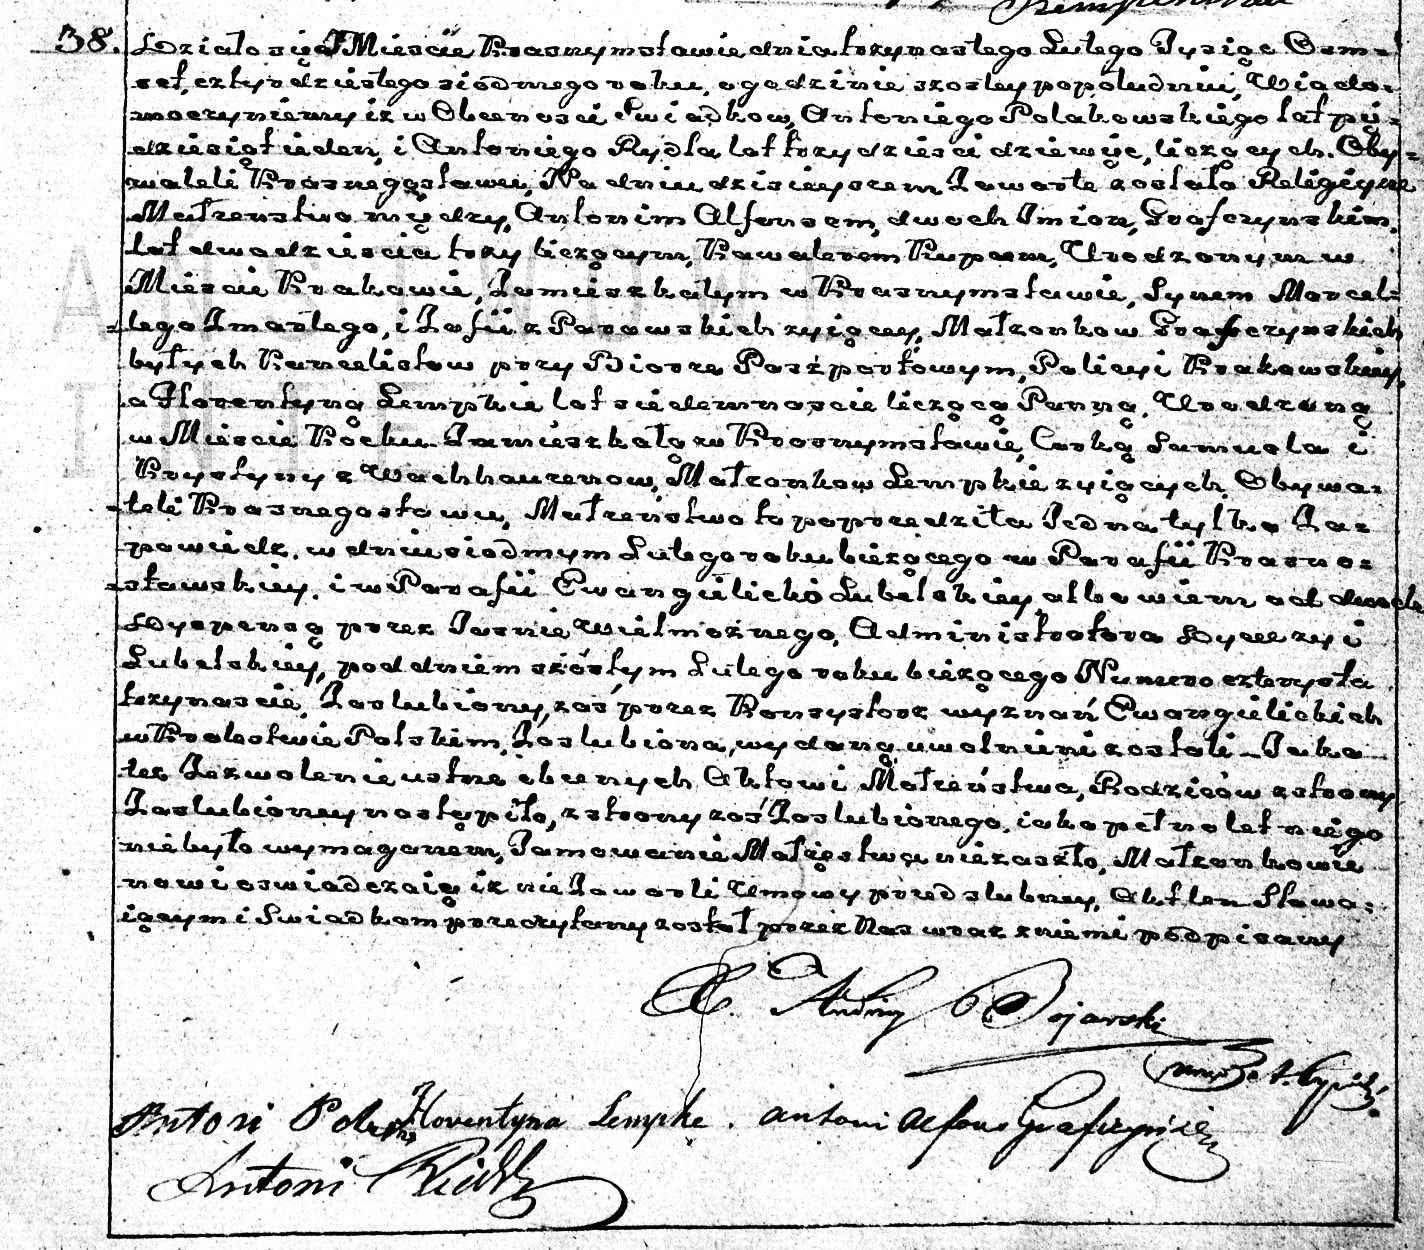 38. Działo się w Mieście Krasnymstawie dnia trzynastego Lutego Tysiąc Osm=
set, czterdziestego siódmego roku, o godzinie szostey popołudniu, Wiado=
mo czyniemy iz w Obecnosci Swiadkow, Antoniego Polakowskiego lat pię=
dziesiąt ieden, i Antoniego Rydla lat trzydziesci dziewięc, liczących. Oby=
wateli Krasnegostawu, Na dniu dzisieyszem Zawarte zostało Religiyne
Małzenstwo między, Antonim Alfonsem, dwoch Imion, Grafczynskim,
lat dwadziescia trzy liczącym, Kawalerem Kupcem, Urodzonym w
Miescie Krakowie, Zamieszkałym w Krasnymstawie, Synem Marcel=
=lego Zmarłego, i Zofii z Parowskich zyiącey, Małzonkow Grafczynskich
byłych Kancelistow przy Biorze Paszportowym, Policyi Krakowskiey,
a Florentyną Lempkie lat siedemnascie liczącą Panną, Urodzoną
w Miescie Rocku Zamieszkałą w Krasnymstawie, Corką Samuela i
Krystyny z Wachhauzenow, Małzonkow Lempkie zyiących, Obywa=
=teli Krasnegostawu, Małzeństwo to poprzedziła Jedna tylko Za=
powiedz, w dniu siodmym Lutego roku bieżącego w Parafii Krasno=
=stawskiey, i w Parafii Ewangielicko Lubelskiey albowiem od dwoch
Dyspensą przez Jasnie Wielmożnego, Administratora Dyecezyi
Lubelskiey, pod dniem szóstym Lutego roku bieżącego Numero czterysta
trzynascie, Zaslubiony, zaś przez Konsystorz wyznań Ewangielickich
w Krolestwie Polskim, Zaslubiona, wydaną uwolnieni zostali_ Jako
tez Zezwolenie ustne obecnych Aktowi Małzeństwa, Rodziców z strony
Zaslubioney nastąpiło, z strony zaś Zaslubionego, iako pełnoletniego
niebyło wymaganem, Tamowanie Małżęstwa niezaszło, Małzonkowie
nowi oswiadczaią iz nie Zawarli Umowy przedslubney, Akt ten Stawa=
iącym i Swiadkom przeczytany został przez Nas wraz z niemi podpisany
X. Andrzey Bojarski
Antoni Florentyna Lempke. Antoni Alfons Graficzyński
Antoni